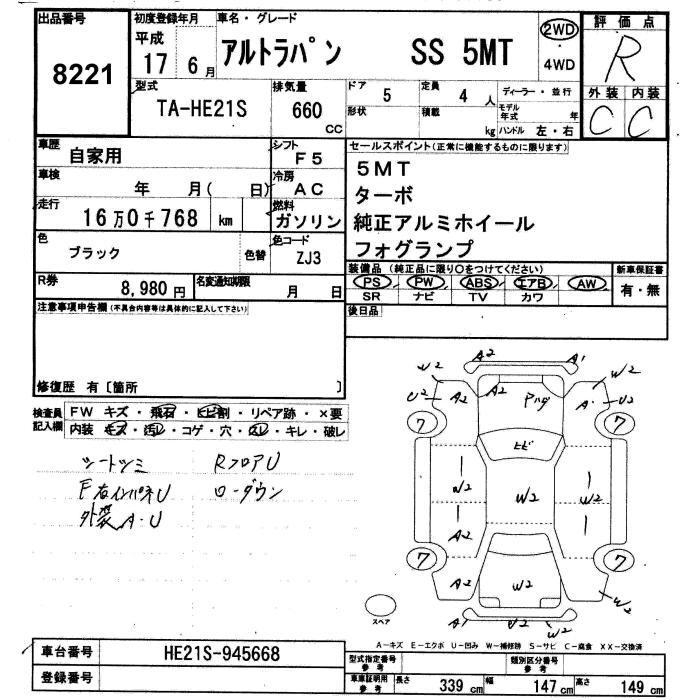 出品番号 初度登録年月 車名・グレード 評価点
8221 平成 17 6月 アルトラパン SS 5MT 2WD・4WD R
型式 排気量 ドア 5 定員 4人 ディーラー・並行 外装 内装
TA-HE21S 660 CC 形状 積載 kg モデル年式 年 ハンドル 左・右 C C
車歴 自家用 シフト F5 セールスポイント(正常に機能するものに限ります)
車検 年 月( 日) 冷房 AC 5MT
ターボ
走行 16万0千768 km 燃料 ガソリン 純正アルミホイール
色 ブラック 色替 色コード ZJ3 フォグランプ
装備品 (純正品に限り○をつけてください) 新車保証書
R券 8,980円 名変通知期限 月 日 PS PW ABS エアB AW 有・無
SR ナビ TV カワ
注意事項申告欄(不具合内容等は具体的に記入して下さい) 後日品
修復歴 有〔箇所 〕
検査員記入欄 FW キズ・飛石・ヒビ割・リペア跡・×要
内装 キズ・汚レ・コゲ・穴・スレ・キレ・破レ
RフロアU
F右インパネU ローダウン
外装A・U
A2 A1
W2 W2
U2 A2 A2 A U2
7 7
ヒビ
W2 W2 W2
A2
7 7
A2 W2
W2
A1 U2 W2
スペア
A-キズ E-エクボ U-凹み W-補修跡 S-サビ C-腐食 XX-交換済
車台番号 HE21S-945668
型式指定番号 参考 類別区分番号 参考
登録番号 車庫証明用 参考 長さ 339cm 幅 147cm 高さ 149cm